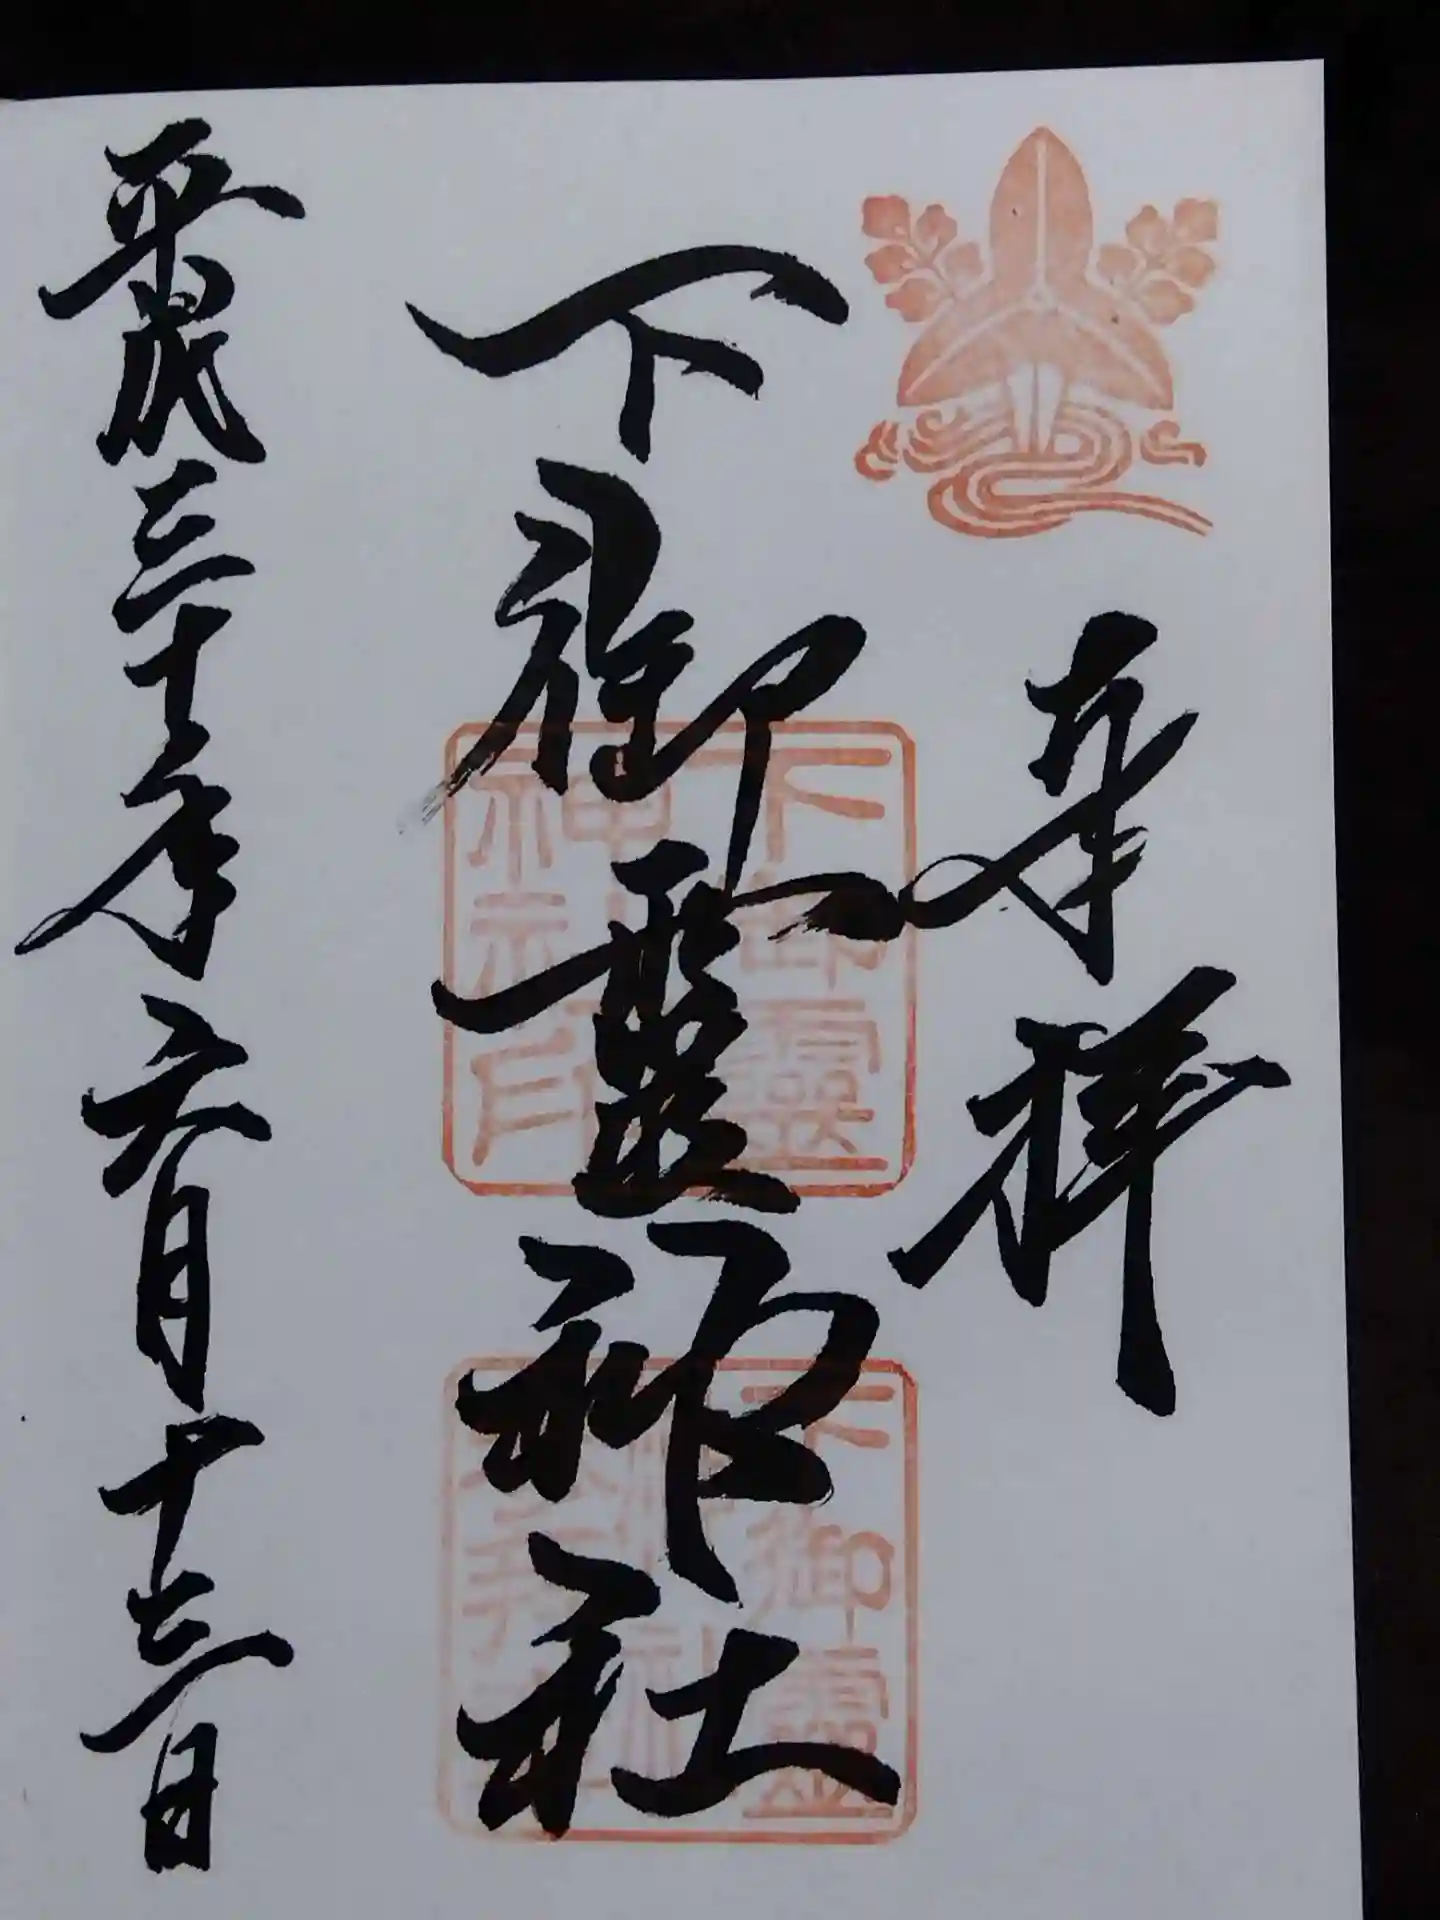 奉拝
下御霊神社
平成三十年六月十三日
下御霊
神社印
下御霊